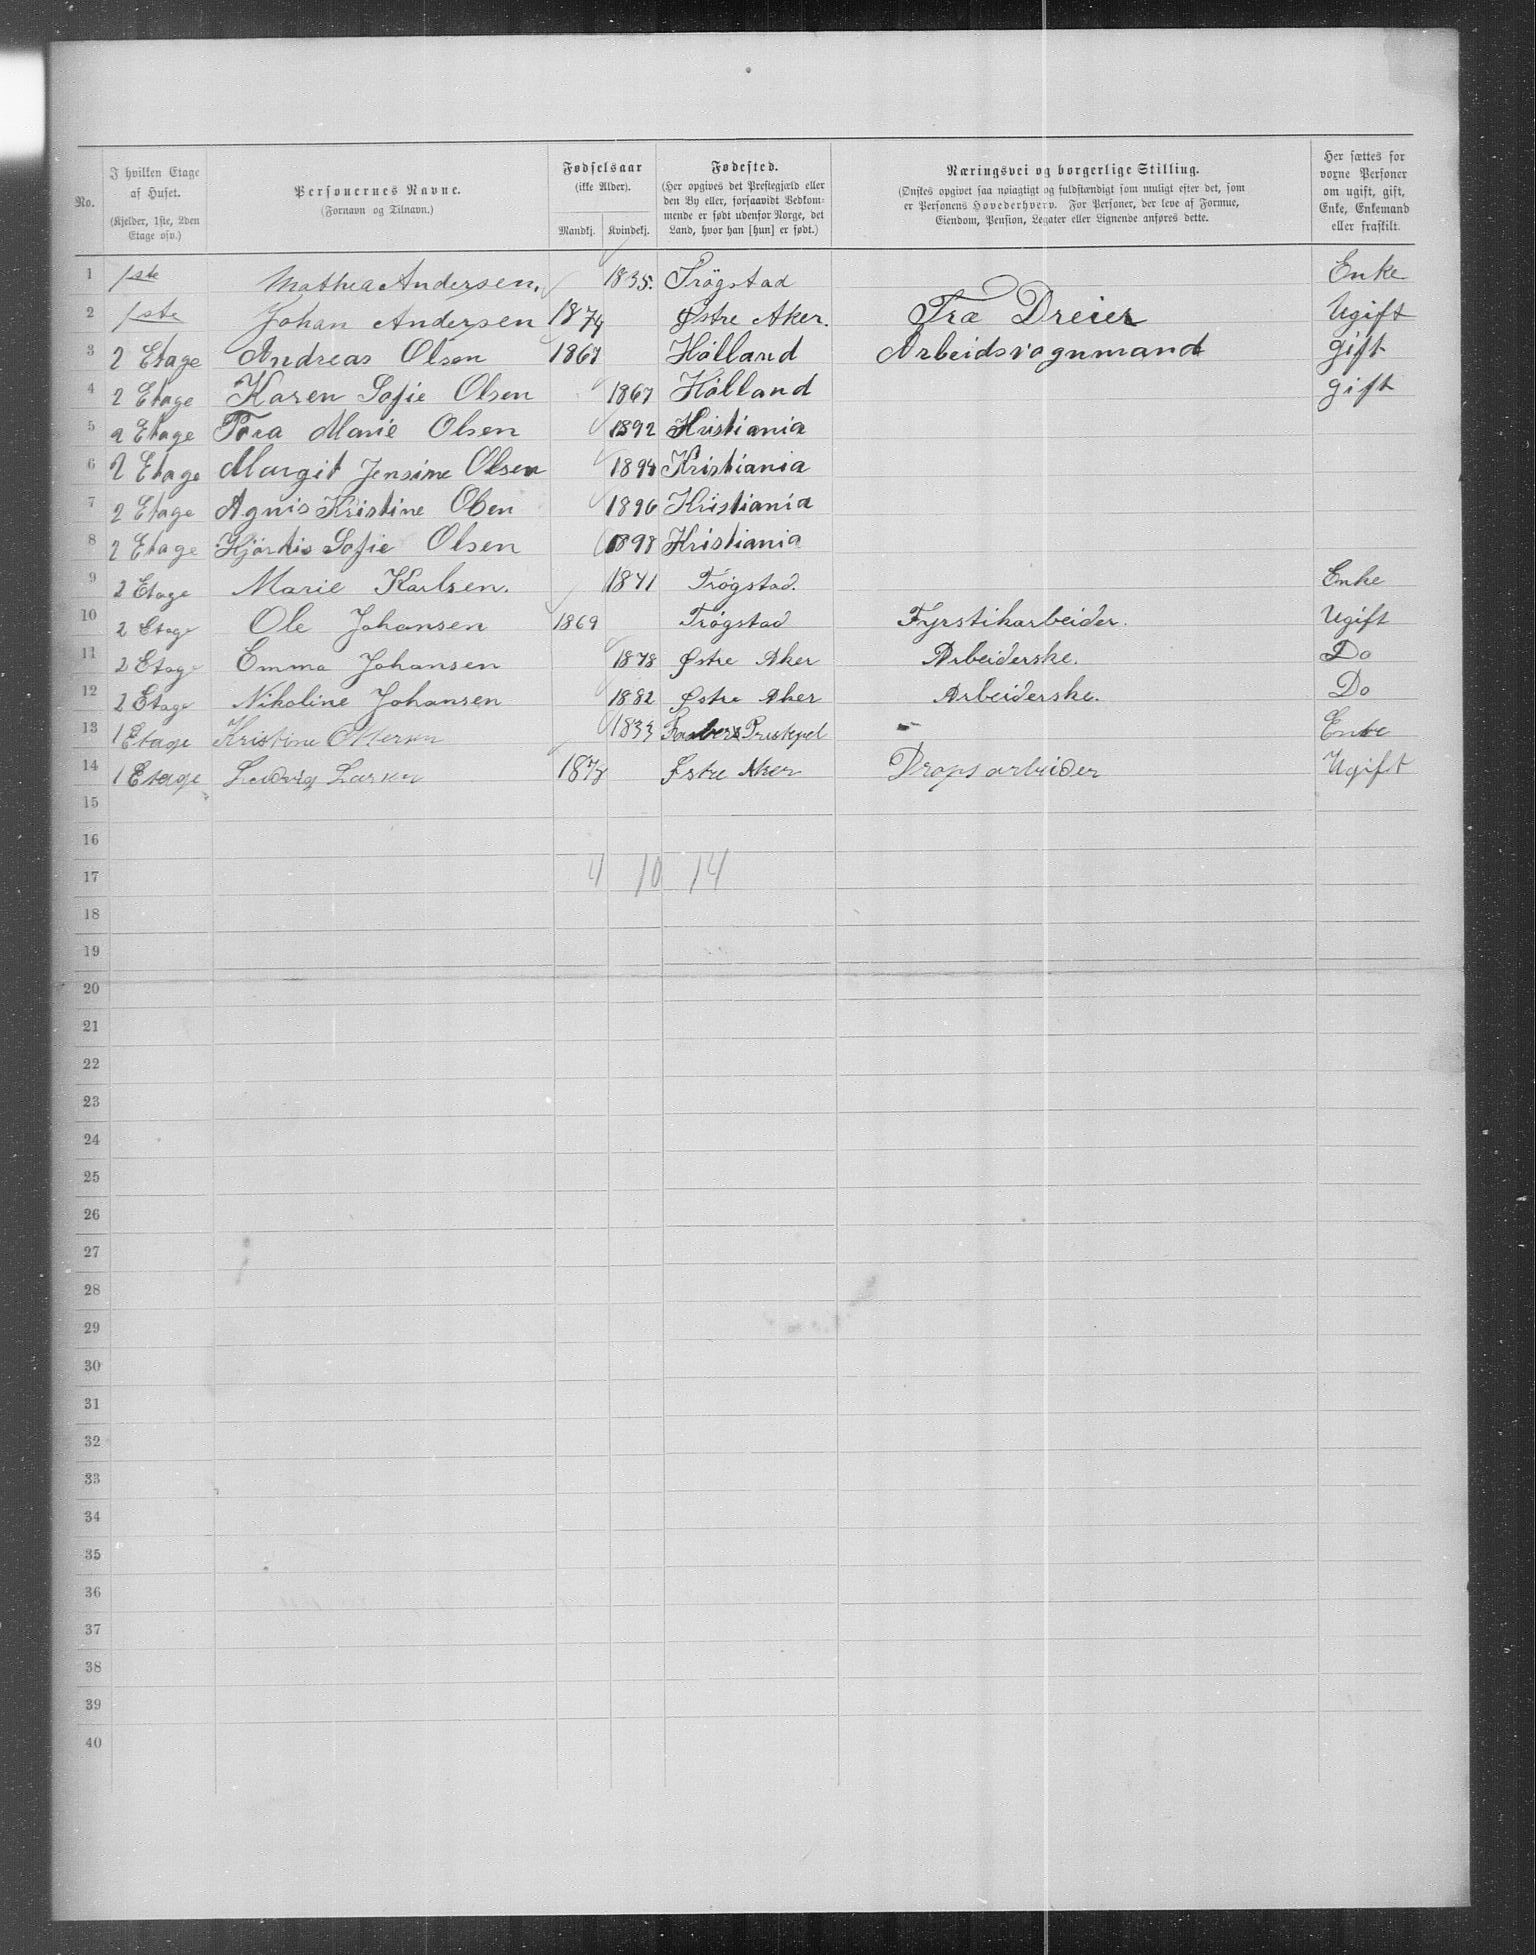 No. | I hvilken Etage af Huset. (Kjelder, 1ste, 2den Etage osv.) | Personernes Navne. (Fornavn og Tilnavn.) | Fødselsaar (ikke Alder). Mandkj. | Kvindekj. | Fødested. (Her opgives det Præstegjæld eller den By eller, forsaavidt Vedkommende er født udenfor Norge, det Land, hvor han [hun] er født.) | Næringsvei og borgerlige Stilling. (Ønskes opgivet saa nøiagtigt og fuldstændigt som muligt efter det, som er Personens Hovederhverv. For Personer, der leve af Formue, Eiendom, Pension, Legater eller Lignende anføres dette.) | Her sættes for voxne Personer om ugift, gift, Enke, Enkemand eller fraskilt.
1 1ste Mathea Andersen. 1835. Trøgstad Enke
2 1ste Johan Andersen 1874 Østre Aker. Træ Dreier Ugift
3 2 Etage Andreas Olsen 1867 Hølland Arbeidsvognmand gift
4 2 Etage Karen Sofie Olsen 1867 Hølland gift
5 2 Etage Tora Marie Olsen 1892 Kristiania
6 2 Etage Margit Jensine Olsen 1894 Kristiania
7 2 Etage Agnis Kristine Olsen 1896 Kristiania
8 2 Etage Hjørdis Sofie Olsen 1898 Kristiania
9 2 Etage Marie Karlsen. 1841 Trøgstad. Enke
10 2 Etage Ole Johansen 1869 Trøgstad Fyrstikarbeider. Ugift
11 2 Etage Emma Johansen 1878 Østre Aker Arbeiderske. Do
12 2 Etage Nikoline Johansen 1882 Østre Aker Arbeiderske. Do
13 1 Etage Kristine 1833 - Enke
14 1 Etage Ludvig Larsen 1878 Østre Aker Dropsarbeider Ugift
15
16
17 4 10 14
18
19
20
21
22
23
24
25
26
27
28
29
30
31
32
33
34
35
36
37
38
39
40